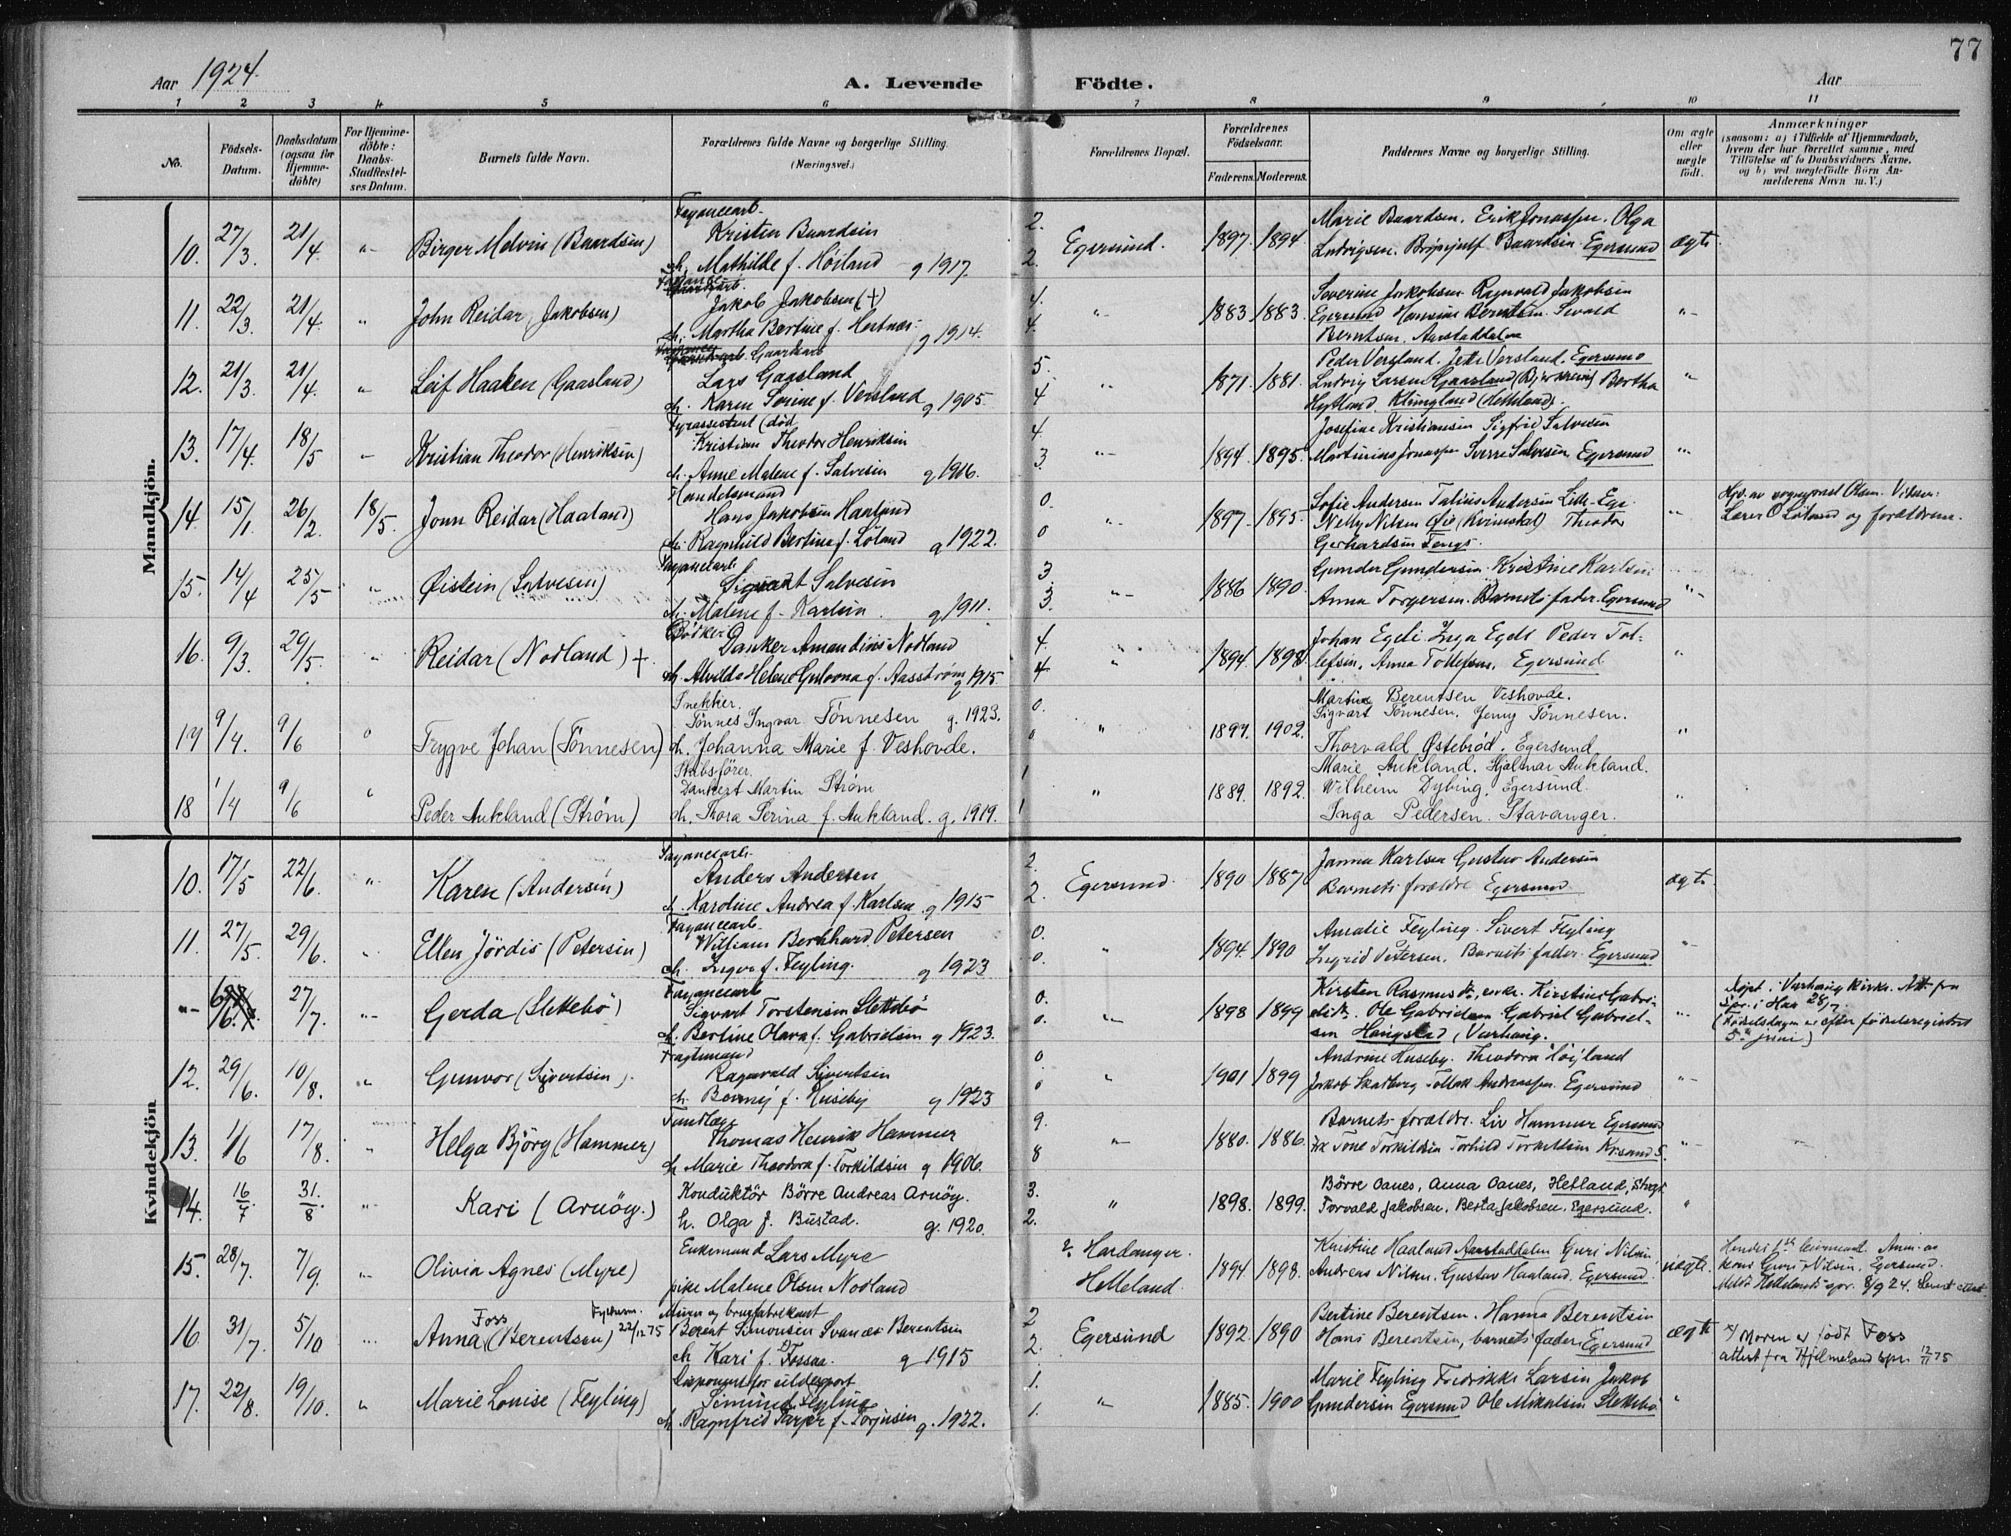 77
Aar 1924.
A. Levende Födte.
Aar
1 2 3 4 5 6 7 8 9 10 11
No.
Födsels-Datum.
Daabsdatum (ogsaa for Hjemme-döbte)
For Hjemme-döbte: Daabs-Stadfæstel-ses Datum.
Barnets fulde Navn.
Forældrenes fulde Navne og borgerlige Stilling. (Næringsvei.)
Forældrenes Bopæl.
Forældrenes Födselsaar.
Faderens. Moderens.
Faddernes Navne og borgerlige Stilling.
Om ægte eller uægte födt.
Anmærkninger
(saasom: a) i Tilfælde af Hjemmedaab, hvem der har forrettet samme, med Tilföielse af to Daabsvidners Navne, og b) ved uægtefödte Börn An-melderens Navn m. V.)
Mandkjön.
10. 27/3. 21/4. " Birger Melvin (Baardsen)
Fayancearb. Kristen Baardsen
h. Mathilde f. Höiland g 1917.
2. 2. Egersund. 1897. 1894.
Marie Baardsen. Erik Jonassen. Olga
Ludvigsen. Baardsen. Egersund ægte
11. 22/3. 21/4. " John Reidar (Jakobsen)
Jakob Jakobsen (+)
h. Martha Bertine f. g 1914.
4. 4. " 1883. 1883.
Severine Jakobsen Ragnvald Jakobsen
Egersund Hansine Berntsen. Sivald
Berntsen. Aarstaddalen "
12. 21/3. 21/4. " Leif Haaken (Gaasland)
Gaardarb
Lars Gaasland
h. Karen Serine f. Versland g 1905.
5. 4 " 1871. 1881.
Peder Versland. Jette Versland. Egersund
Ludvig Larsen Gaasland (Bjerkreim) Bertha
Klungland (Helleland). "
13. 17/4. 18/5 " Kristian Theodor (Henriksen)
Fyrassistent (död
Kristian Theodor Henriksen
h. Anne Malene f. Salvesen g 1916.
4. 3. " 1894. 1895.
Josefine Kristiansen Sigfrid Salvesen
Martinius Jonassen Sverre Salvesen. Egersund "
14. 15/1. 26/2. 18/5. Jonn Reidar (Haaland)
Handelsmand
Hans Jakobsen Haaland
h. Ragnhild Bertine f. Löland g 1922.
0. 0 " 1897. 1895.
Sofie Andersen Talius Andersen Lille-Ege
Nelly Nilsen Öie (Kvinesdal) Theodor
Gerhardsen Tengs. "
Hjd. av sogneprest Olsen. Vidner:
Lærer O Löland og forældrene.
15. 14/4 25/5 " Øistein (Salvesen)
Fayancearb
Sigvart Salvesen
h. Malene f. Karlsen g 1911.
3. 3. " 1886 1890.
Gunder Gundersen. Kristine Karlsen
Anna Torgersen. Barnets fader. Egersund "
16. 9/3. 29/5. " Reidar (Nodland) +
Bödker
Danker Amandius Nodland
h. Alvilde Helene f. Aasström g 1915.
4. 4. " 1894 1898
Johan Egeli. Inga Egeli Peder Tol-
lefsen. Anna Tollefsen. Egersund "
17 9/4. 9/6 " Trygve Johan (Tønnesen)
Snekker.
Tønnes Ingvar Tønnesen g. 1923.
h. Johanna Marie f. Veshovde.
0. 0 " 1897. 1902.
Martine Berentsen Veshovde.
Sigvart Tønnesen. Jenny Tønnesen.
Thorvald Østebrød. Egersund "
18 1/4 9/6 " Peder Aukland (Strøm)
Dankert Martin Strøm
h. Thora Serina f. Aukland. g. 1919.
1 1 " 1889. 1892.
Marie Aukland. Hjalmar Aukland.
Vilhelm Dybing. Egersund.
Inga Pedersen. Stavanger. "
Kvindekjön
10. 17/5 22/6. " Karen (Andersen)
Fayancearb.
Anders Andersen
h. Karoline Andrea f. Karlsen. g 1915
2. 2. Egersund. 1890 1887
Janna Karlsen Gustav Andersen
Barnets forældre Egersund ægte
11. 27/5. 29/6. " Ellen Jördis (Petersen)
Fayancearb.
William Bernhard Petersen
h. Inga f. Feyling. g 1923
0. 0. " 1894. 1890
Amalie Feyling. Sivert Feyling
Ingrid Petersen. Barnets fader. Egersund "
" 27/7. " Gerda (Slettebö)
Fayancearb
Sigvart Torstensen Slettebö
h. Bertine Olava f. Gabrielsen g 1923.
0. 0. " 1898 1899
Kirsten Rasmusd., enke. Kirstine Gabri-
elsd. Ole Gabrielsen Gabriel Gabriel-
sen Haugstad (Varhaug. "
Döpt i Varhaug kirke. Att fra
Spr. i Haa 28/7.
(Födselsdagen er efter födselsregistret
5te juni)
12. 29/6. 10/8. " Gunvor (Sivertsen)
Fragtemand
Ragnvald Sivertsen
h. f. Huseby g 1923
0 0 " 1901 1899
Andrine Huseby. Theodora Höyland
Jakob Skadberg Tollak Andreassen. Egersund "
13. 1/6 17/8. " Helga Björg (Hammer)
Tandlæge
Thomas Henrik Hammer
h. Marie Theodora f. Torkildsen g 1906.
9. 8 " 1880. 1886.
Barnets forældre. Liv Hammer Egersund
Frk Tone Torkildsen Torhild Torkildsen Krsand S. "
14. 16/7 31./8 " Kari (Arnöy.)
Konduktör Börre Andreas Arnöy.
h. Olga f. Bustad. g. 1920.
3. 2. " 1898. 1899.
Börre Oanes, Anna Oanes, Hetland,
Torvald Jakobsen. Berta Jakobsen, Egersund. "
15. 28/7. 7/9. " Olivia Agnes (Myre)
Enkemand Lars Myre
pike Malene Olsen Nodland
Hardanger.
Helleland. 1894. 1898.
Kristine Haaland Aarstaddalen Guri Nilsen
Andreas Nilsen. Gustav Haaland. Egersund. uægte.
Hendes 1ste leiermaal. Anm. av
kone Guri Nilsen, Egersund.
Meldt Hellelands spr. 8/9 24.
16. 31/7. 5/10 " Anna Foss (Berentsen) 22/12 75
Murer og brugsfabrikant
Berent Simonsen Svanæs Berentsen
h. Kari f. Fossaa. g 1915
2 2. Egersund 1892. 1890
Bertine Berentsen. Hanna Berentsen
Hans Berentsen, barnets fader, Egersund ægte
x) Moren er född Foss
attest fra Hjelmeland spr. 12/11 75
17. 22/8. 19/10. " Marie Louise (Feyling)
Disponent for sildexport
Simund Feyling
h. Ragnfrid f. Torjusen g. 1922.
1. 1. " 1885. 1900
Marie Feyling Fredrikke Larsen Jakob
Gundersen Egersund Ole Mikalsen Slettebö "